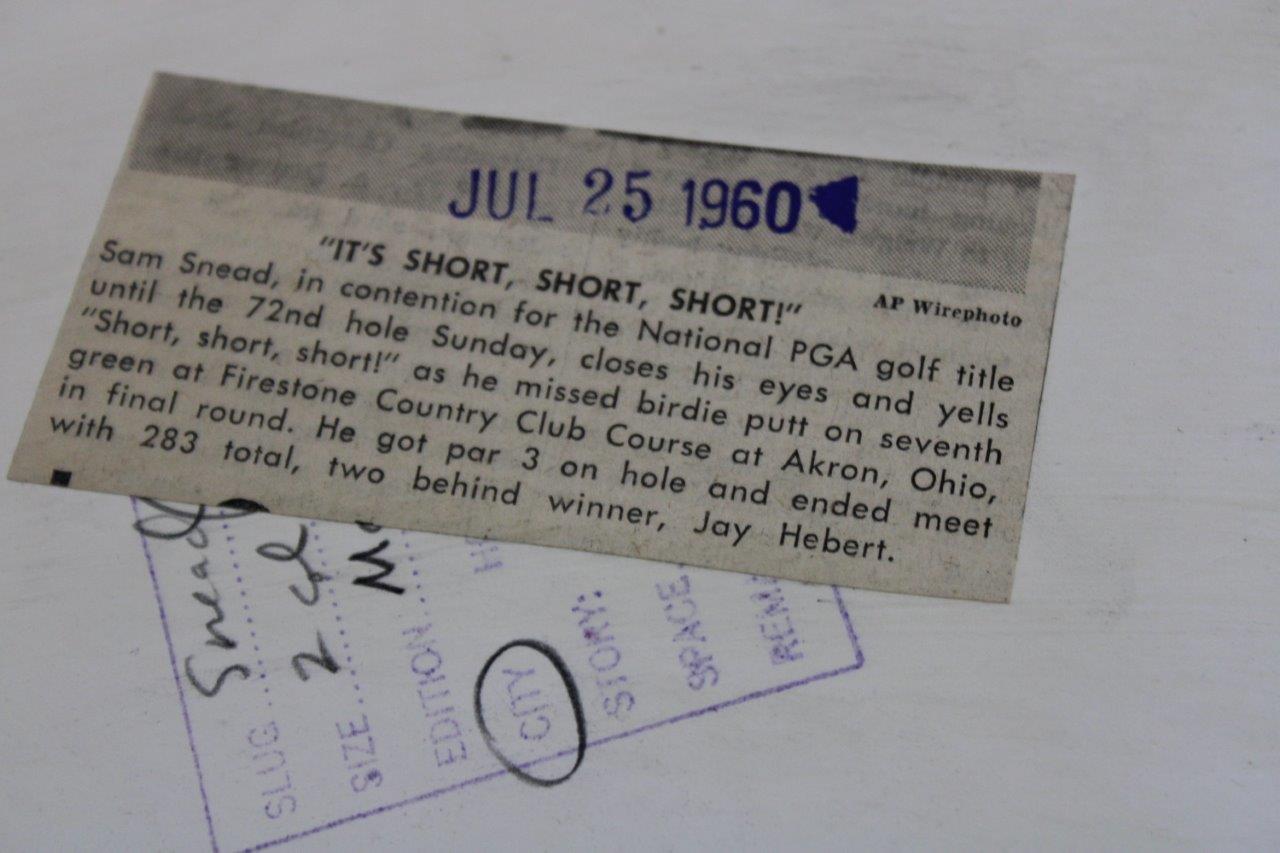 JUL 25 1960
"IT'S SHORT, SHORT, SHORT!" AP Wirephoto
Sam Snead, in contention for the National PGA golf title
until the 72nd hole Sunday, closes his eyes and yells
"Short, short, short!" as he missed birdie putt on seventh
green at Firestone Country Club Course at Akron, Ohio,
in final round. He got par 3 on hole and ended meet
with 283 total, two behind winner, Jay Hebert.
SLUG Snead
SIZE 2 col
EDITION
CITY
STORY:
SPACE